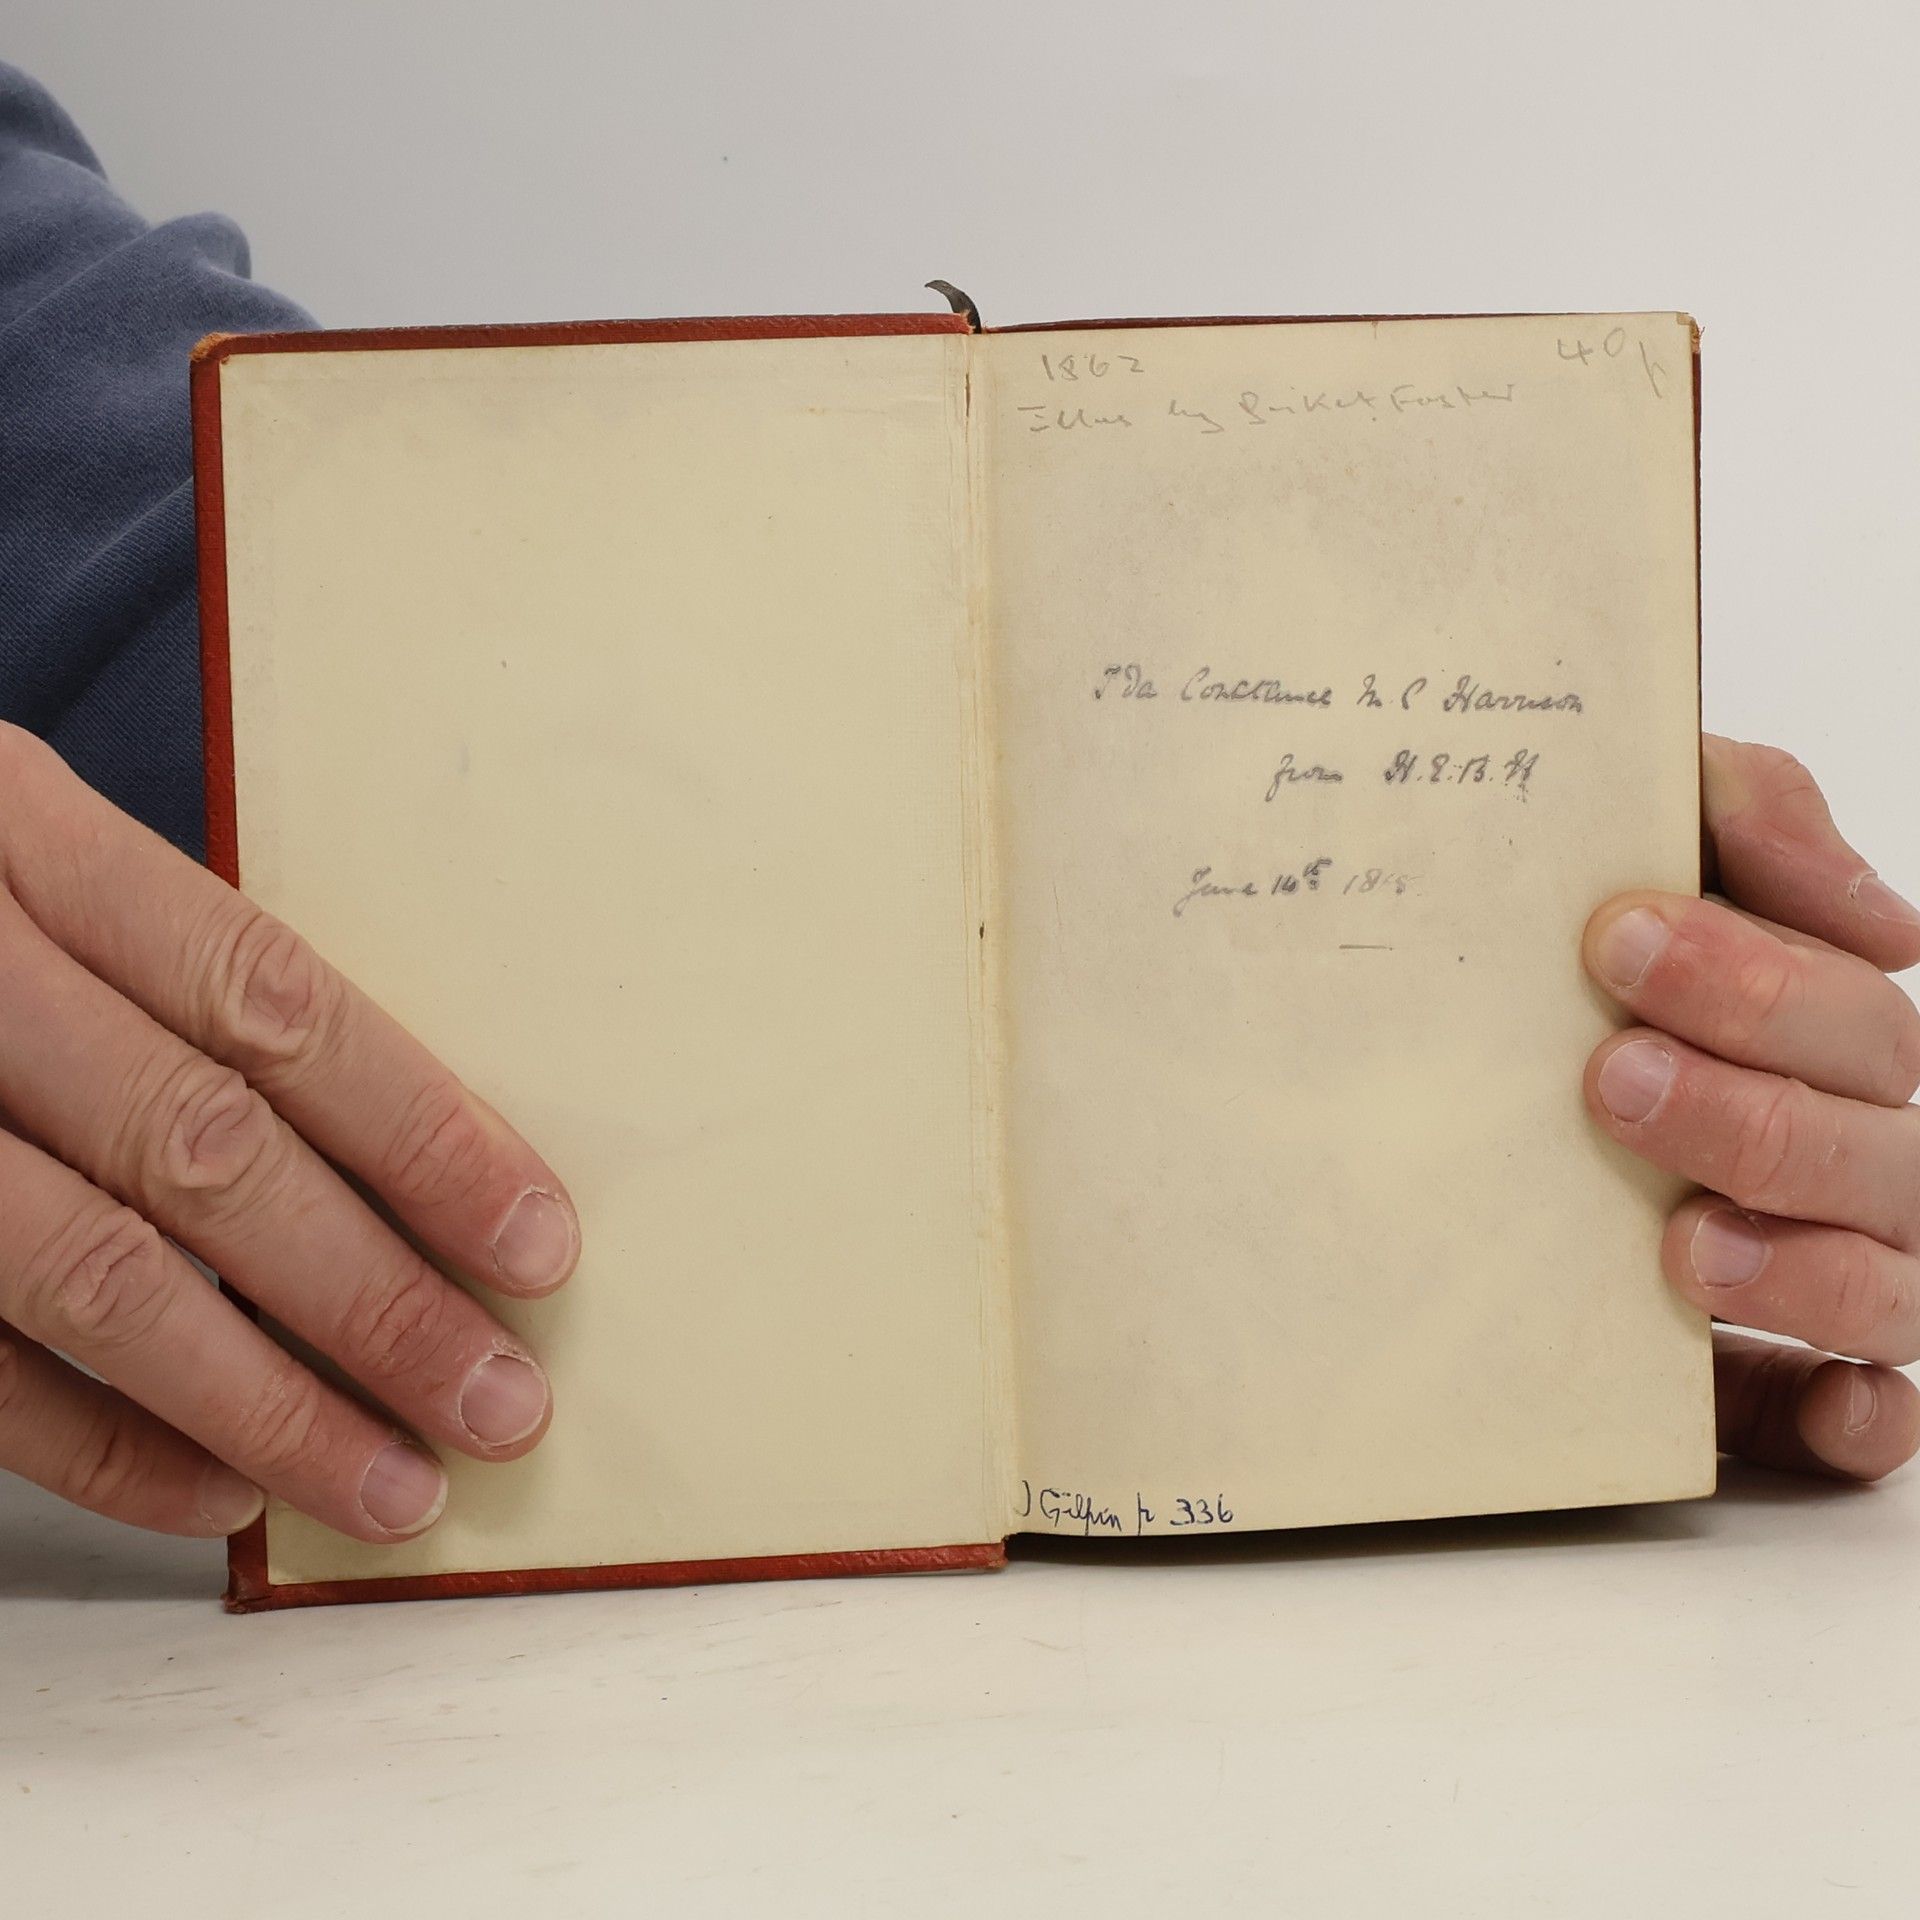 1862 40p
Illus by Birket Foster
Ida Constance M. C Harrison
from H.E.B.H
June 14th
J Gilpin p 336